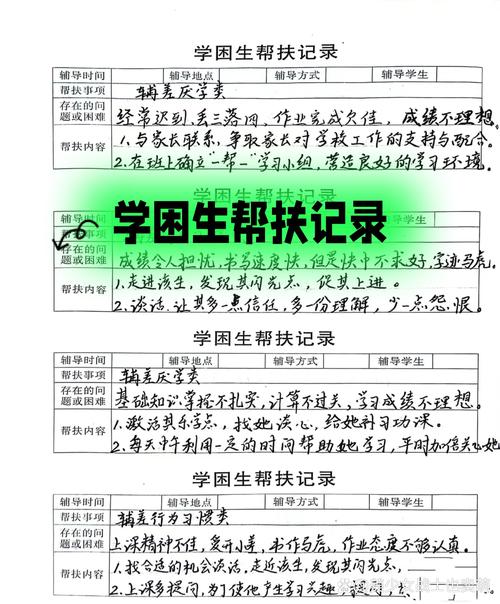 学困生帮扶记录
辅导时间 辅导地点 辅导方式 辅导学生
帮扶事项 辅差厌学类
存在的问题或困难 经常迟到、丢三落四,作业完成欠佳,成绩不理想。
帮扶内容 1.与家长联系,争取家长对学校工作的支持与配合。
2.在班上确立“一帮一”学习小组,营造良好的学习环境。
学困生帮扶记录
学困生帮扶记录
辅导时间 辅导方式 辅导学生
帮扶事项
存在的问题或困难 成绩令人担忧,书写速度快,但是快中不求好,字迹马虎。
帮扶内容 1.走进该生,发现其闪光点,促其上进。
2.谈话,让其多一点信任,多一份理解,少一点怨恨。
学困生帮扶记录
辅导时间 辅导地点 辅导方式 辅导学生
帮扶事项 辅差厌学类
存在的问题或困难 基础知识掌握不扎实,计算不过关,学习成绩不理想。
帮扶内容 1.激活其乐学点,找她谈心,给她补习功课。
2.每天中午利用一定的时间帮助她学习,平时加倍关心她
学困生帮扶记录
辅导时间 辅导地点 辅导方式 辅导学生
帮扶事项 辅差行为习惯类
存在的问题或困难 上课精神不佳,爱开小差,书作马虎,作业态度不够认真。
帮扶内容 1.找合适的机会谈话,走近该生,发现其闪光点,
2.上课多提问,为使他产生学习兴趣